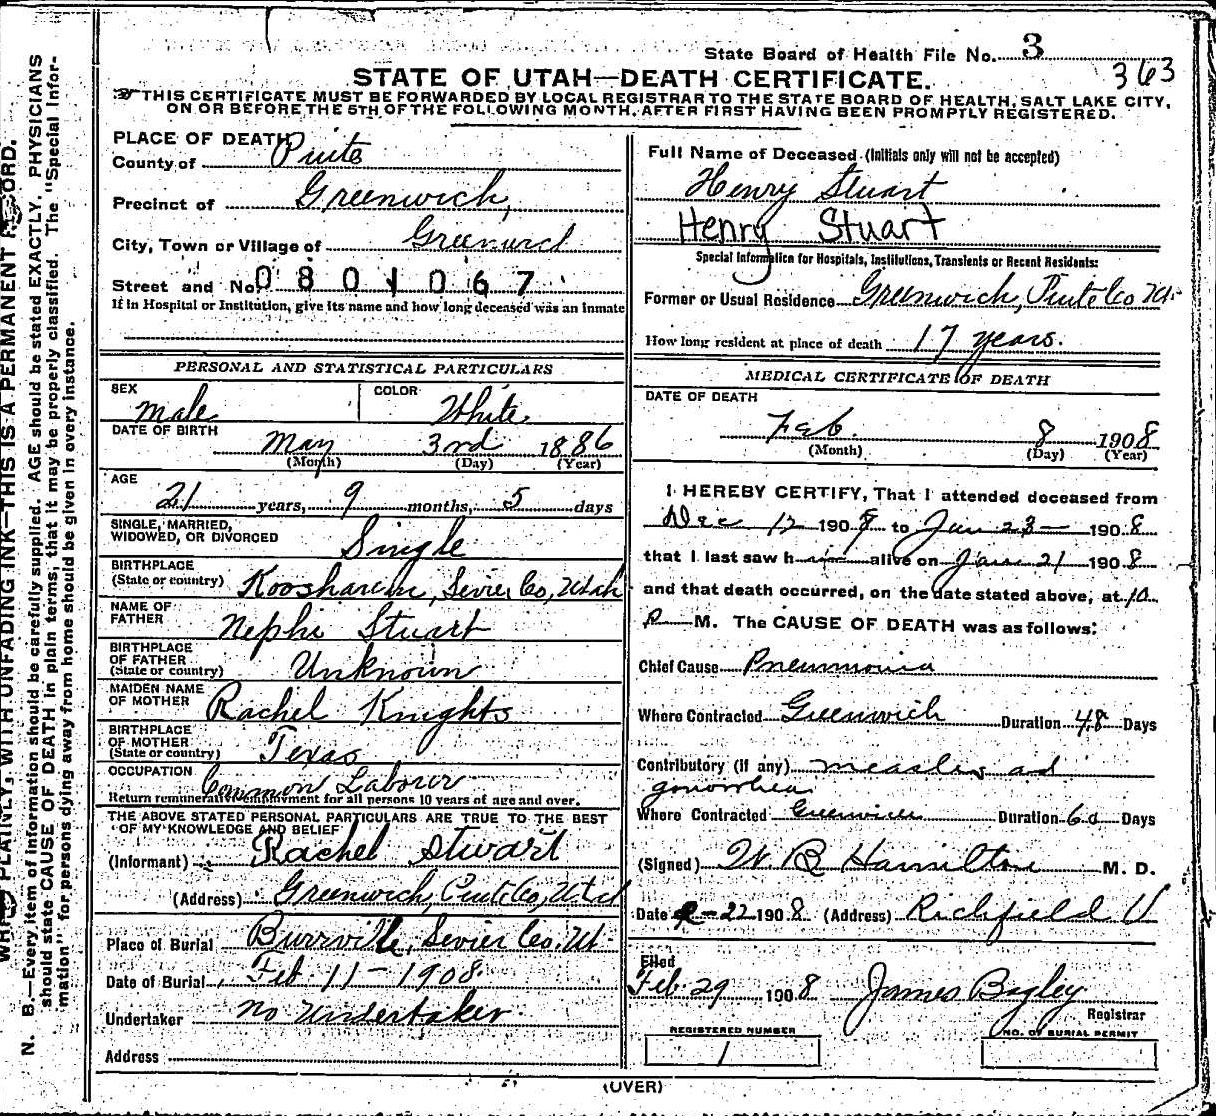 State Board of Health File No. 3
363
STATE OF UTAH—DEATH CERTIFICATE.
THIS CERTIFICATE MUST BE FORWARDED BY LOCAL REGISTRAR TO THE STATE BOARD OF HEALTH, SALT LAKE CITY,
ON OR BEFORE THE 5TH OF THE FOLLOWING MONTH, AFTER FIRST HAVING BEEN PROMPTLY REGISTERED.
PLACE OF DEATH
County of Piute
Precinct of Greenwich,
City, Town or Village of Greenwich
Street and No. 0801067
If in Hospital or Institution, give its name and how long deceased was an inmate
PERSONAL AND STATISTICAL PARTICULARS
SEX male
COLOR White
DATE OF BIRTH
May 3rd 1886
(Month) (Day) (Year)
AGE
21 years, 9 months, 5 days
SINGLE, MARRIED,
WIDOWED, OR DIVORCED Single
BIRTHPLACE
(State or country) Koosharem, Sevier Co, Utah
NAME OF
FATHER Nephi Stuart
BIRTHPLACE
OF FATHER
(State or country) Unknown
MAIDEN NAME
OF MOTHER Rachel Knights
BIRTHPLACE
OF MOTHER
(State or country) Texas
OCCUPATION Common Laborer
Return remunerative employment for all persons 10 years of age and over.
THE ABOVE STATED PERSONAL PARTICULARS ARE TRUE TO THE BEST
OF MY KNOWLEDGE AND BELIEF
(Informant) Rachel Stuart
(Address) Greenwich, Piute Co, Utah
Place of Burial Burrville, Sevier Co. Ut.
Date of Burial, Feb 11 - 1908.
Undertaker no undertaker
Address
Full Name of Deceased (Initials only will not be accepted)
Henry Stuart
Henry Stuart
Special Information for Hospitals, Institutions, Transients or Recent Residents:
Former or Usual Residence Greenwich, Piute Co Ut.
How long resident at place of death 17 years.
MEDICAL CERTIFICATE OF DEATH
DATE OF DEATH
Feb. 8 1908
(Month) (Day) (Year)
I HEREBY CERTIFY, That I attended deceased from
Dec 12 190 to Jan 23 — 1908
that I last saw him alive on Jan 21 1908
and that death occurred, on the date stated above, at 10
P M. The CAUSE OF DEATH was as follows:
Chief Cause Pneumonia
Where Contracted Greenwich Duration 48 Days
Contributory (if any) measles and
gonorrhea
Where Contracted Greenwich Duration 60 Days
(Signed) W R Hamilton M. D.
Date 22 1908 (Address) Richfield U
Filed
Feb. 29 1908 James Bagley
Registrar
REGISTERED NUMBER
1
NO. OF BURIAL PERMIT
(OVER)
N. B.—Every item of information should be carefully supplied. AGE should be stated EXACTLY. PHYSICIANS
should state CAUSE OF DEATH in plain terms, that it may be properly classified. The "Special Infor-
mation" for persons dying away from home should be given in every instance.
PLAINLY, WITH UNFADING INK—THIS IS A PERMANENT RECORD.